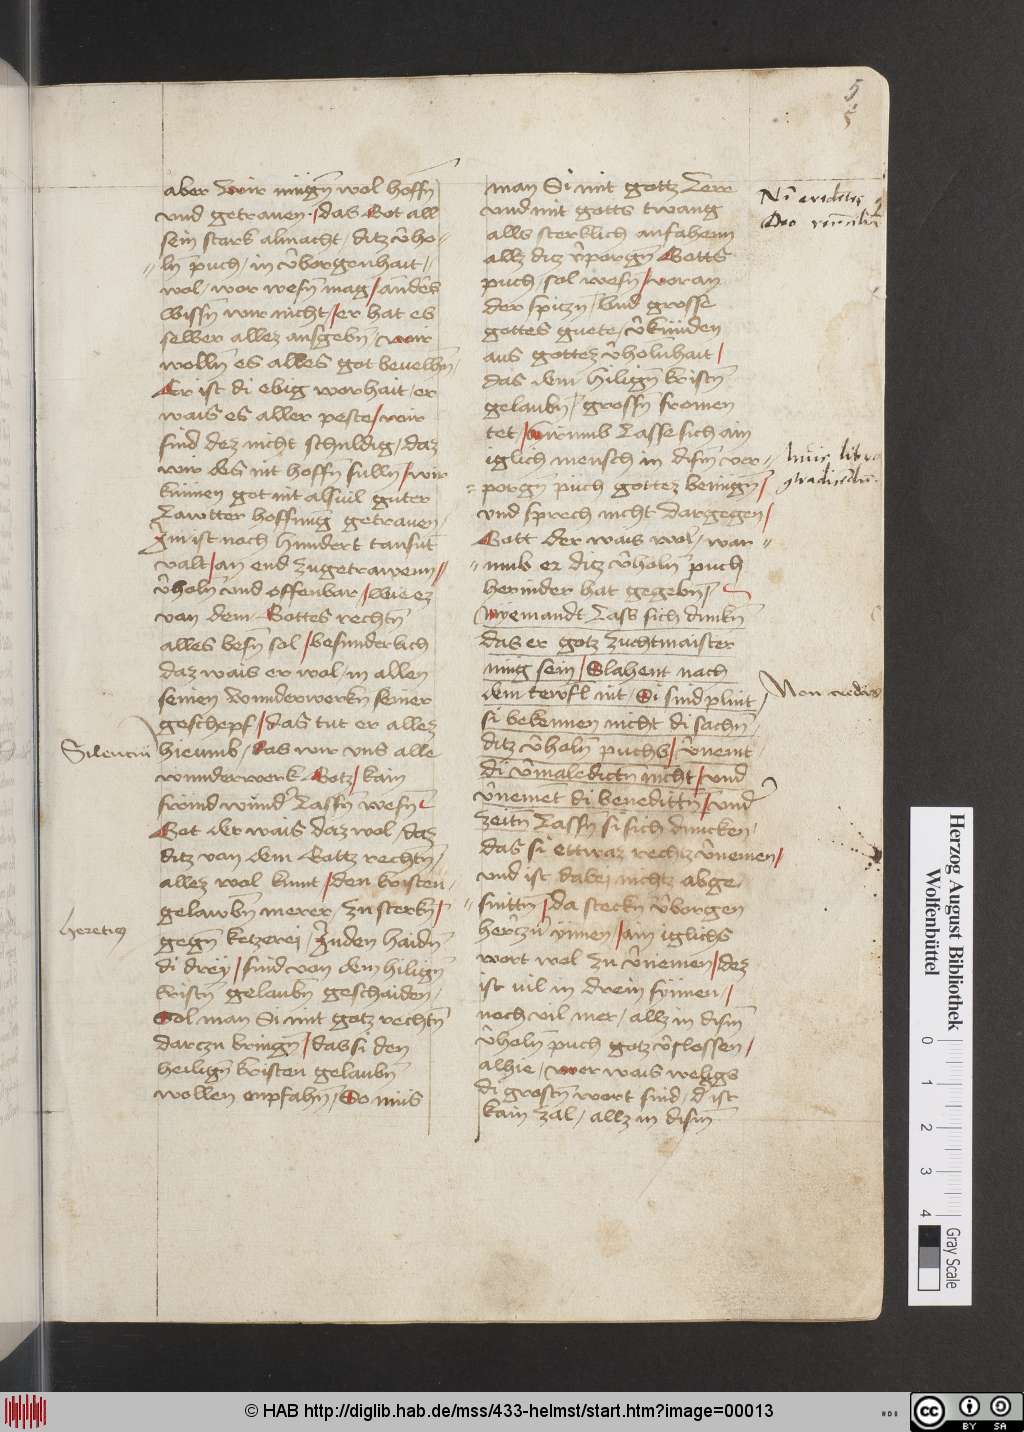 5
5
aber wir mügn̄ wol hoffn̄
vnd getrauen / das Got all
sein stark almacht / ditz v̄ho-
ln̄ puch / in v̄borgenhait /
wol / wor wesn̄ mag / anders
wissn̄ wir nicht / er hat es
selber allez ausgebn̄ / wir
wolln̄ es alles got beuelhn̄ /
Er ist di ebig worhait / er
wais es aller peste / wir
sind dez nicht schuldig / daz
wir des nit hoffn̄ sulln̄ / wir
künnen got nit alsuil guter
Lawtter hoffnung getrauen /
Im ist noch hundert tausnt
valt / an end zugetrawenn /
v̄holn̄ vnd offenbar / wie ez
van dem Gottes rechtn̄
alles besn̄ sol / besunderlich
daz wais er wol / in allen
seinen wunderwerkn̄ seiner
geschepf / das tut er allez
Silencium
hieumb / das wir vns alle
wunderwerk Gotz / kain
frömd wund̄ Lassn̄ wesn̄
Got der wais daz wol / daz
ditz van dem Gottz rechtn̄ /
allez wol kumt / den kristen /
gelawbn̄ merer / zu sterkn̄ /
hereticus
gegn̄ ketzerei / Juden haidn̄
di drey / sind von dem hilign̄
kristn̄ gelaubn̄ geschaiden /
Sol man Si mit gotz rechtn̄
darczu bringn̄ / das si den
heilign̄ kristen gelaubn̄
wollen enpfahn̄ / So mus
man Si mit gottz Lere
vnd mit gotts twang
alls sterklich anfahenn
allz ditz v̄porgn̄ Gotts
puch / sol wesn̄ / voran
der spiczn̄ / Vnd grosse
gottes guete / v̄künden
aus gottez v̄holnhait /
das dem hilign̄ kristn̄
gelaubn̄ / grossn̄ fromen
tet / hirumb Lasse sich ain
iglich mensch in disn̄ ver-
porgn̄ puch gottez benugn̄ /
vnd sprech nicht dargegen /
Gott der wais wol / war-
umb er ditz v̄holn̄ puch
herinder hat gegebn̄ /
Nyemandt Lass sich dunkn̄
das er gotz zuchtmaister
mug sein / Slahent nach
dem tewfl nit / Si sind plint /
si bekennen nicht di sachn̄ /
ditz v̄holn̄ puchs / v̄nemt
di v̄maledictn̄ nicht / vnd
v̄nemet di benedittn̄ / vnd
zeitn̄ Lassn̄ si sich duncken /
das si ettwaz rechtz v̄nemen /
vnd ist dabei nichtz abge-
snittn̄ / da steckn̄ v̄borgen
herczn̄ ynnen / am iglichs
wort wol zu v̄nemen / dez
ist uil in drein synnen /
noch vil mer / allz in dism̄
v̄holn̄ puch gotz v̄slossen /
alhie / wer wais welhgs
di grostn̄ wort sind / d ist
kain zal / allz in dism̄
Deo
huic libro
Non
Herzog August Bibliothek
Wolfenbüttel
0
1
2
3
4
Gray Scale
© HAB http://diglib.hab.de/mss/433-helmst/start.htm?image=00013
cc
BY
SA